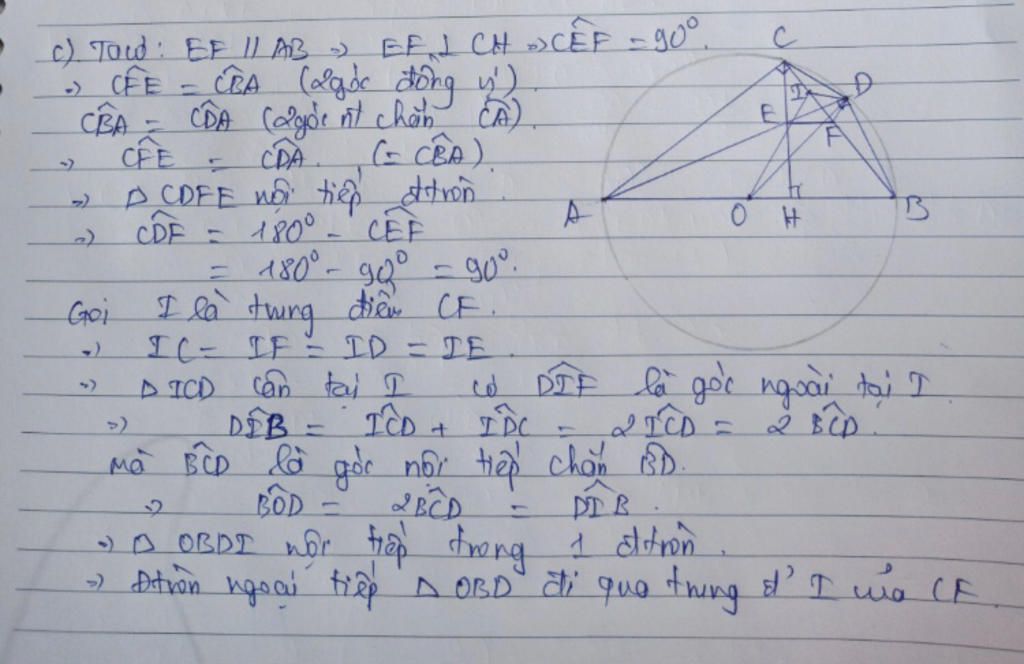 c). Tacó: EF // AB => EF ⊥ CH => CÊF = 90°.
=> CF̂E = CB̂A (2góc đồng vị)
CB̂A = CD̂A (2góc nt chắn CA).
=> CF̂E = CD̂A. (= CB̂A)
=> CDFE nội tiếp đtròn.
=> CD̂F = 180° - CÊF
= 180° - 90° = 90°.
Gọi I là trung điểm CF.
=> IC = IF = ID = IE.
=> Δ ICD cân tại I có DÎF là góc ngoài tại I
=> DÎB = IĈD + ID̂C = 2IĈD = 2 BĈD.
mà BĈD là góc nội tiếp chắn BD.
=> BÔD = 2BĈD = DÎB.
=> OBDI nội tiếp trong 1 đtròn.
=> Đtròn ngoại tiếp Δ OBD đi qua trung đ' I của CF.
C
I
D
E
F
A
O
H
B